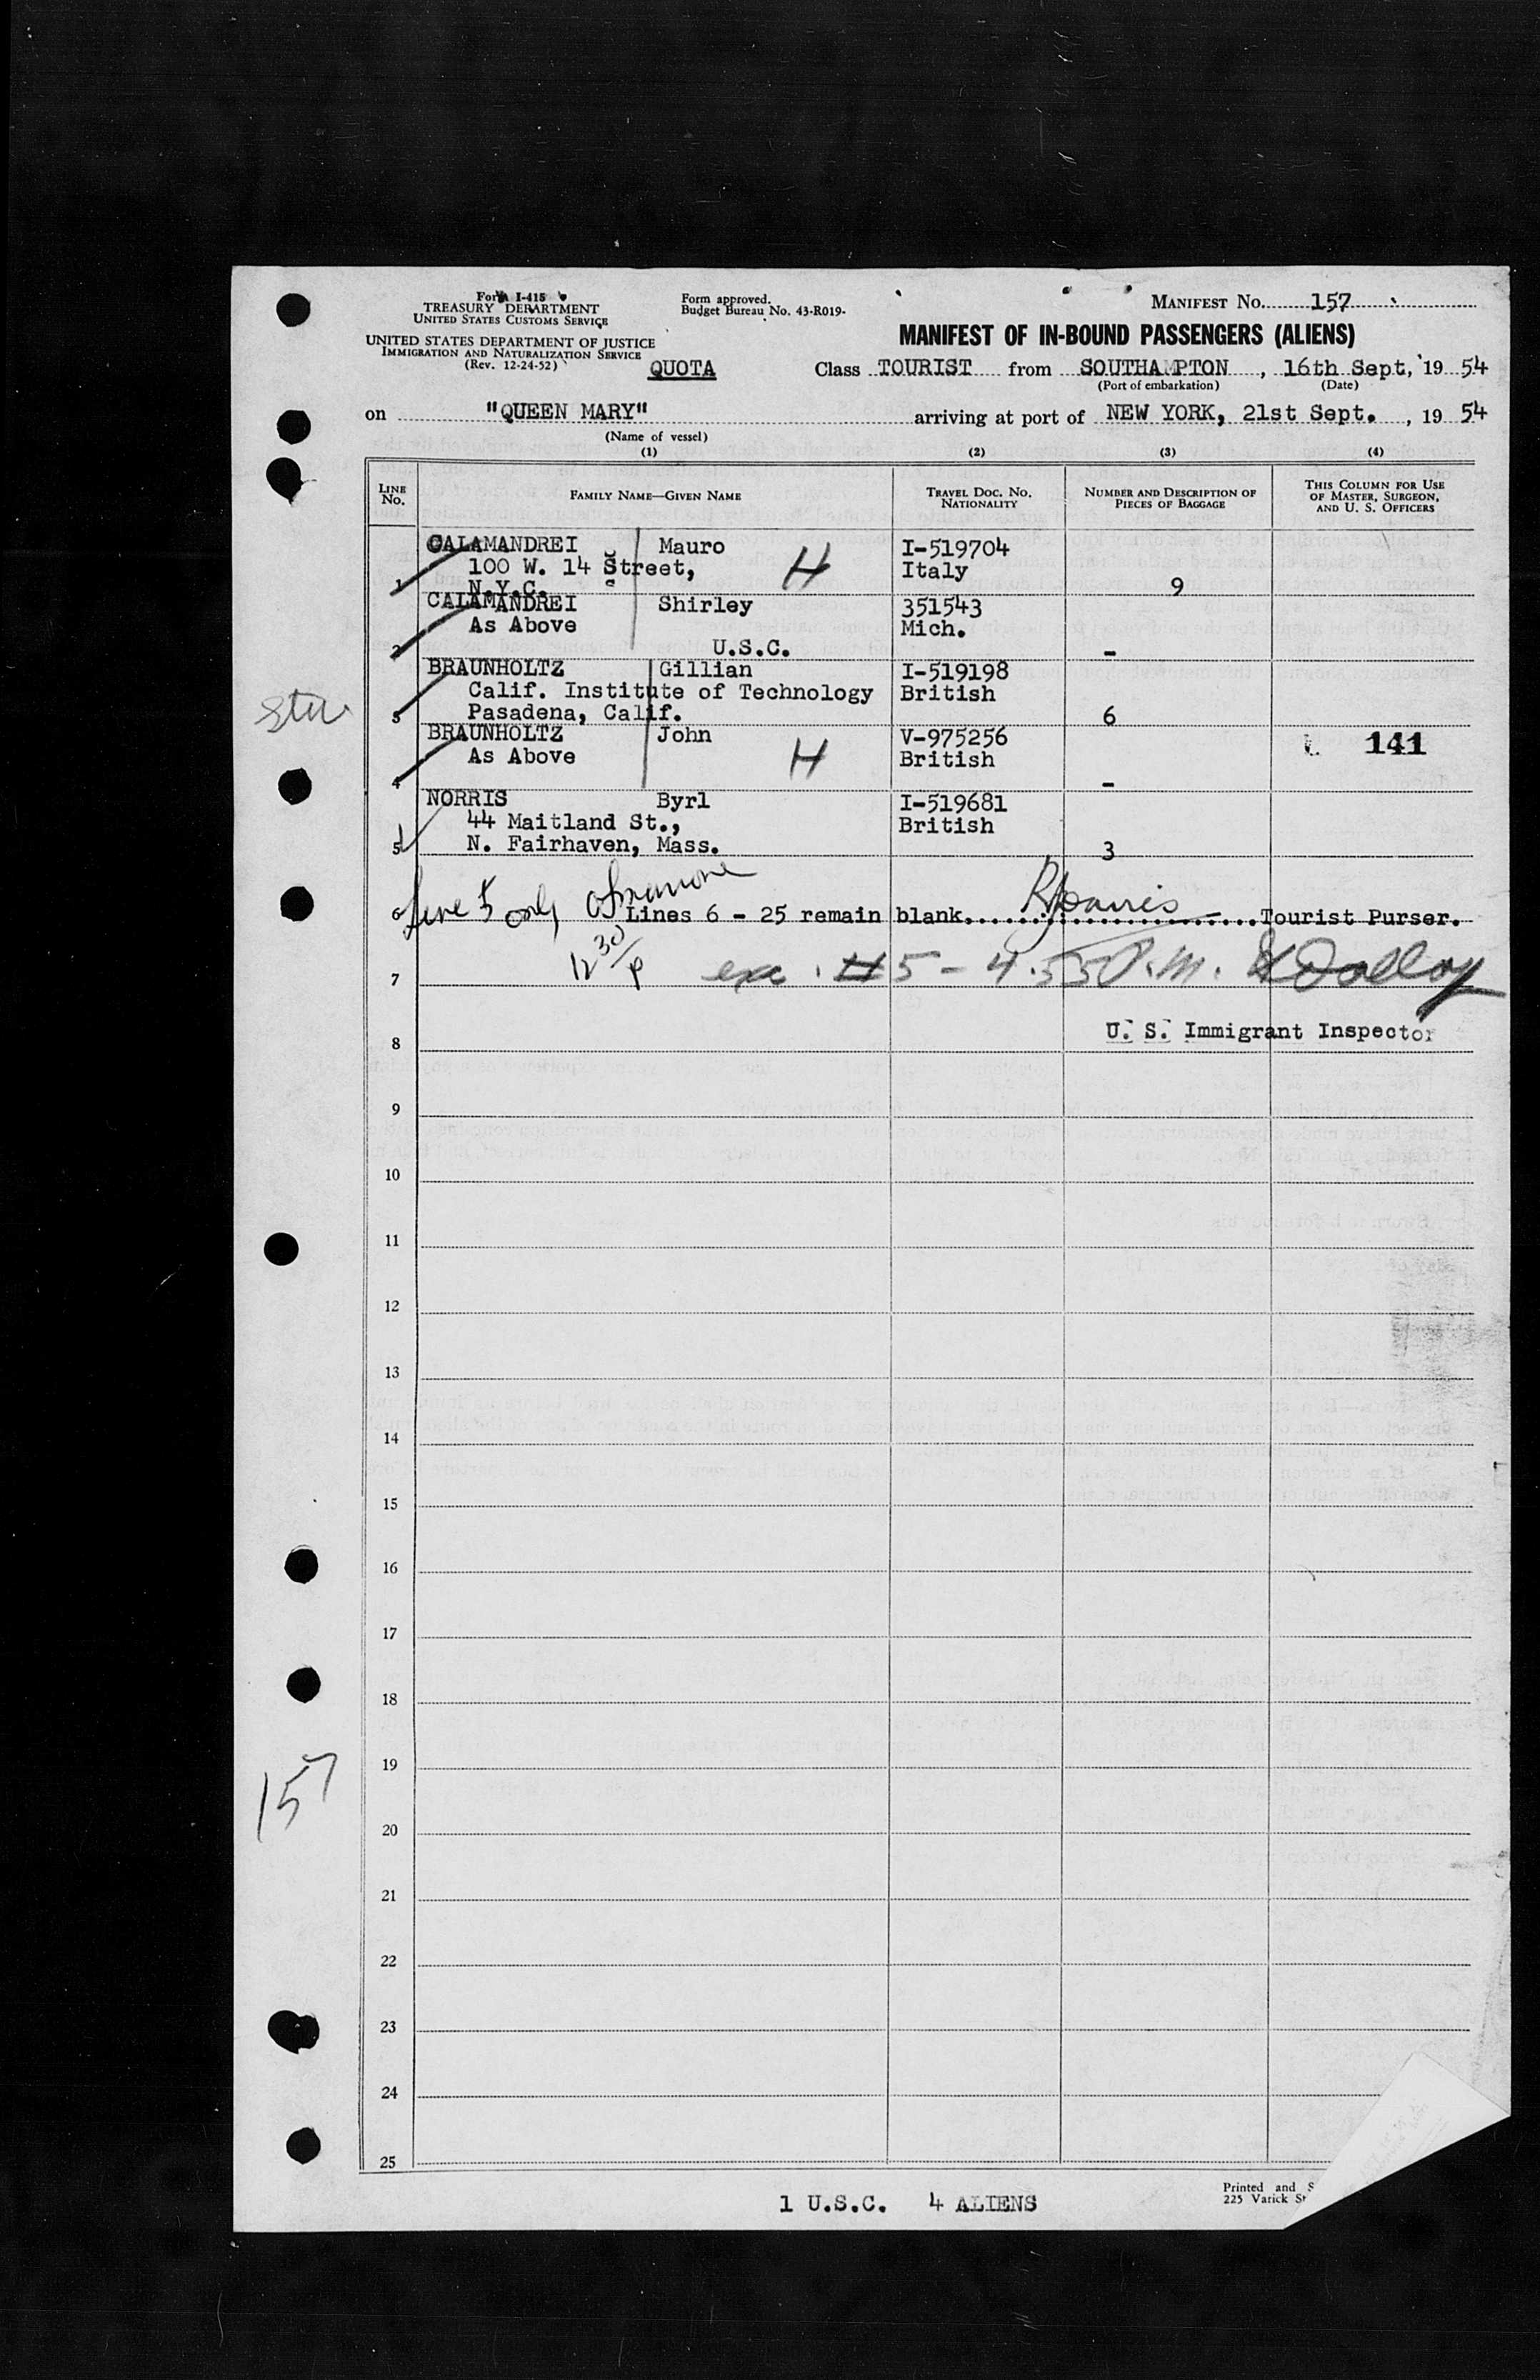 Form I-415
TREASURY DEPARTMENT
UNITED STATES CUSTOMS SERVICE
UNITED STATES DEPARTMENT OF JUSTICE
IMMIGRATION AND NATURALIZATION SERVICE
(Rev. 12-24-52)
QUOTA
Form approved.
Budget Bureau No. 43-R019-
MANIFEST NO. 157
MANIFEST OF IN-BOUND PASSENGERS (ALIENS)
Class TOURIST from SOUTHAMPTON, 16th Sept, 19 54
(Port of embarkation) (Date)
on "QUEEN MARY" arriving at port of NEW YORK, 21st Sept., 19 54
(Name of vessel)
(1) (2) (3) (4)
LINE NO. FAMILY NAME—GIVEN NAME TRAVEL DOC. NO. NATIONALITY NUMBER AND DESCRIPTION OF PIECES OF BAGGAGE THIS COLUMN FOR USE OF MASTER, SURGEON, AND U. S. OFFICERS
CALAMANDREI Mauro I-519704
100 W. 14 Street, H Italy
1 N.Y.C. 9
CALAMANDREI Shirley 351543
As Above Mich.
2 U.S.C. -
BRAUNHOLTZ Gillian I-519198
Calif. Institute of Technology British
3 Pasadena, Calif. 6
BRAUNHOLTZ John V-975256 141
As Above H British
4 -
NORRIS Byrl I-519681
44 Maitland St., British
5 N. Fairhaven, Mass. 3
line 5 only
6 Lines 6 - 25 remain blank. Tourist Purser.
12 30/p
7 exc. #5 - 4.55 P.M.
U. S. Immigrant Inspector
8
9
10
11
12
13
14
15
16
17
18
19
157
20
21
22
23
24
25
1 U.S.C. 4 ALIENS
Printed and S
225 Varick St